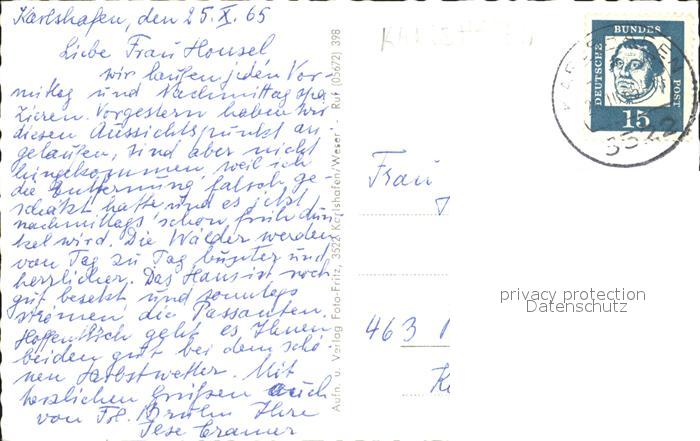 Karlshafen, den 25. X. 65
Liebe Frau Housel
wir laufen jeden Vor-
mittag und Nachmittag spa-
zieren. Vorgestern haben wir
diesen Aussichtspunkt an-
gelaufen, sind aber nicht
hingekommen, weil ich
die Entfernung falsch ge-
schätzt hatte und es jetzt
nachmittags schon früh dun-
kel wird. Die Wälder werden
von Tag zu Tag bunter und
herrlicher. Das Haus ist noch
gut besetzt und sonntags
strömen die Passanten.
Hoffentlich geht es Ihnen
beiden gut bei dem schö-
nen Herbstwetter. Mit
herzlichen Grüßen auch
von Frl. Brühn Ihre
Ilse Cramer
Aufn. u. Verlag Foto-Fritz, 3522 Karlshafen/Weser - Ruf (05672) 398
KARLSHAFEN
DEUTSCHE BUNDESPOST
15
3522
Frau
463
privacy protection
Datenschutz